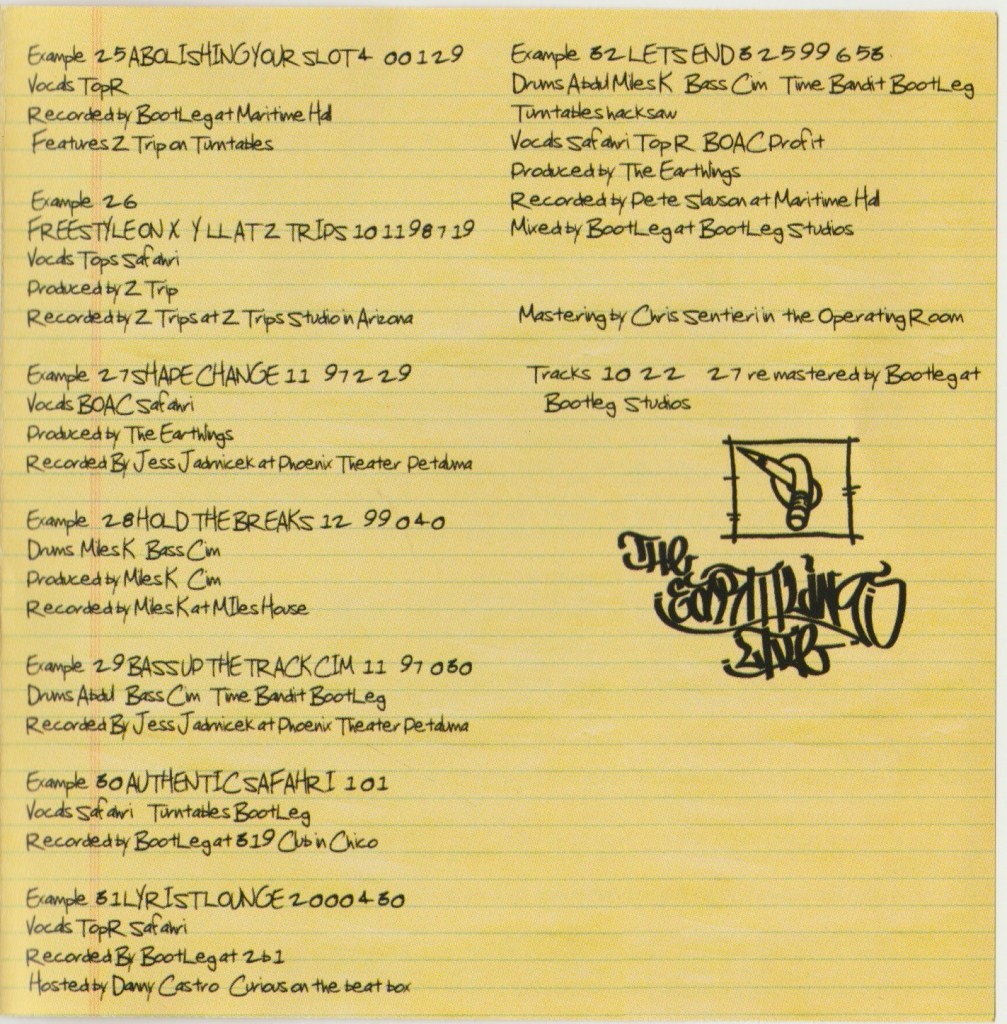 Example 25ABOLISHINGYOURSLOT4 00129
Vocals TopR
Recorded by BootLeg at Maritime Hall
Features Z Trip on Turntables
Example 26
FREESTYLEONX YLLATZ TRIPS 101198719
Vocals Tops Safahri
Produced by Z Trip
Recorded by Z Trips at Z Trips Studio in Arizona
Example 27SHAPECHANGE 11 97229
Vocals BOAC Safahri
Produced by The Earthlings
Recorded By Jess Jadrnicek at Phoenix Theater Petaluma
Example 28HOLDTHEBREAKS 12 99040
Drums MilesK Bass Cim
Produced by MilesK Cim
Recorded by MilesK at MIles House
Example 29BASSUPTHETRACKCIM 11 97030
Drums Abdul Bass Cim Time Bandit BootLeg
Recorded By Jess Jadrnicek at Phoenix Theater Petaluma
Example 30AUTHENTICSAFAHRI 101
Vocals Safahri Turntables BootLeg
Recorded by BootLeg at 319 Club in Chico
Example 31LYRISTLOUNGE2000430
Vocals TopR Safahri
Recorded By BootLeg at 2b1
Hosted by Danny Castro Curious on the beat box
Example 32LETSEND32599653
Drums Abdul MilesK Bass Cim Time Bandit BootLeg
Turntables hacksaw
Vocals Safahri TopR BOAC Profit
Produced by The Earthlings
Recorded by Pete Slauson at Maritime Hall
Mixed by BootLeg at BootLeg Studios
Mastering by Chris Sentieri in the Operating Room
Tracks 10 22 27 remastered by Bootleg at
Bootleg Studios
THE
EARTHLINGS